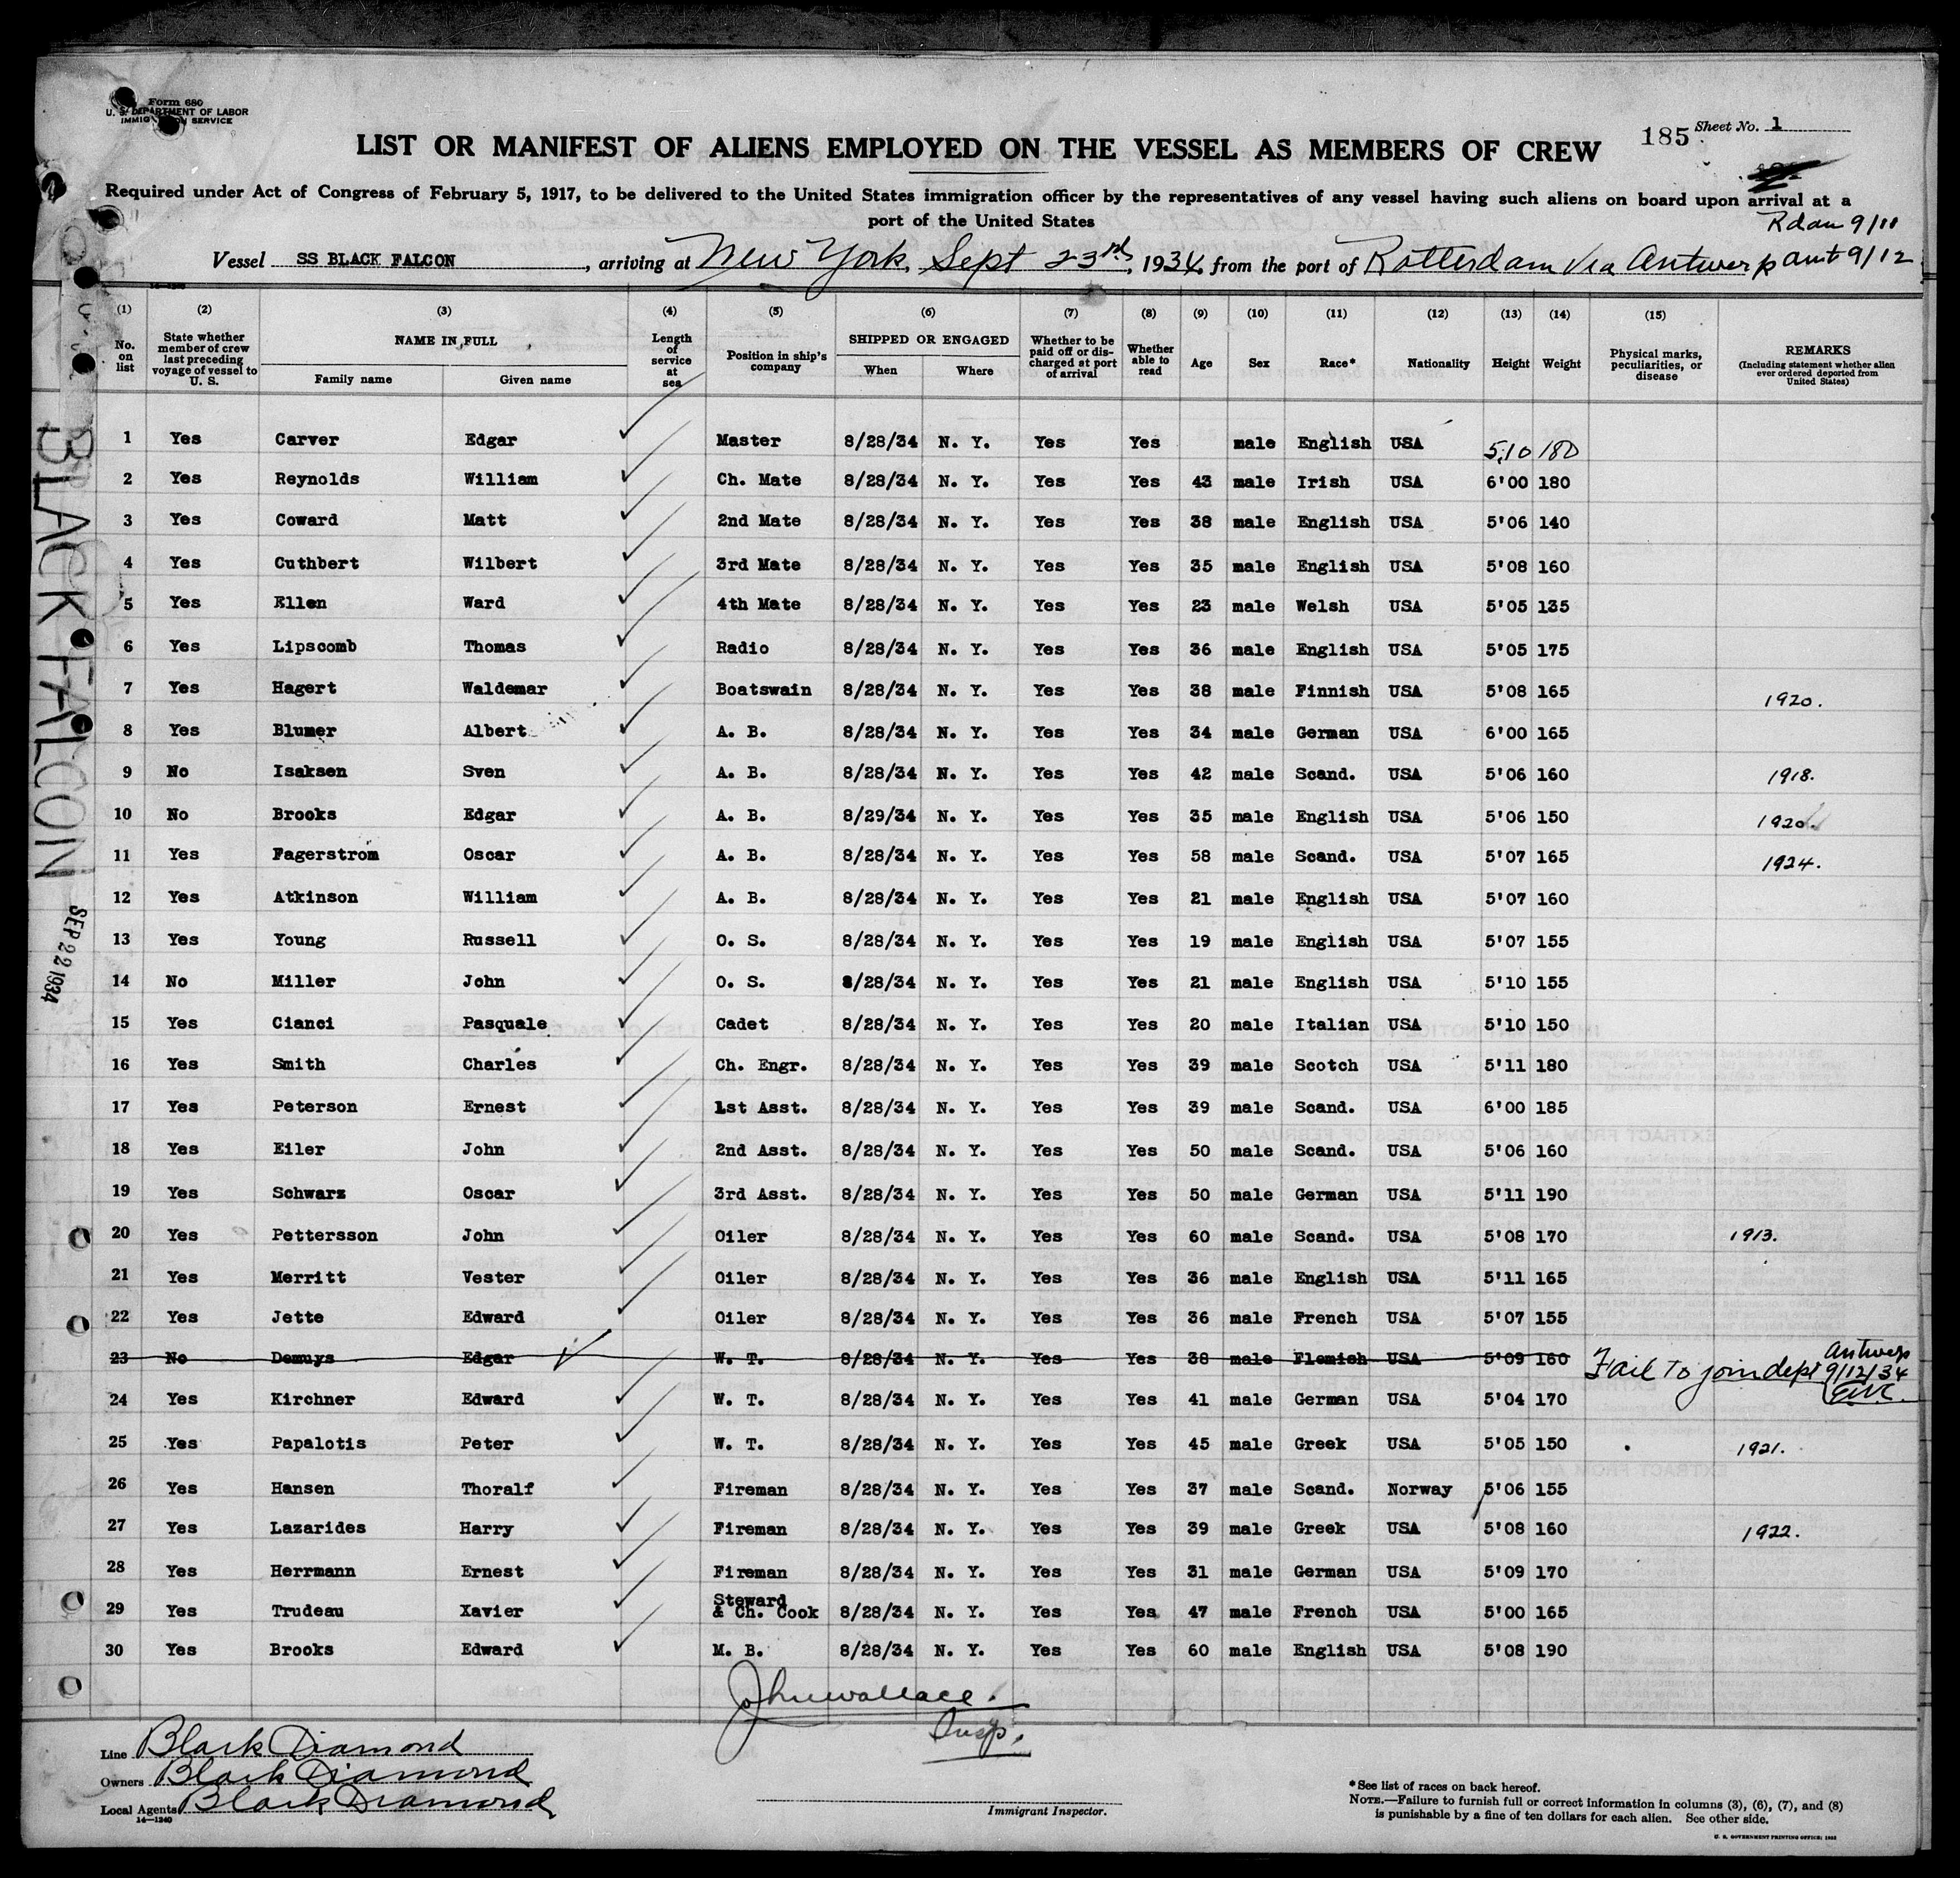 Form 680
U. S. DEPARTMENT OF LABOR
IMMIGRATION SERVICE
185 Sheet No. 1
LIST OR MANIFEST OF ALIENS EMPLOYED ON THE VESSEL AS MEMBERS OF CREW
Required under Act of Congress of February 5, 1917, to be delivered to the United States immigration officer by the representatives of any vessel having such aliens on board upon arrival at a
port of the United States
Rdam 9/11
Vessel SS BLACK FALCON, arriving at New York, Sept 23rd, 1934, from the port of Rotterdam Via Antwerp ant 9/12
(1) No. on list
(2) State whether member of crew last preceding voyage of vessel to U. S.
(3) NAME IN FULL Family name Given name
(4) Length of service at sea
(5) Position in ship's company
(6) SHIPPED OR ENGAGED When Where
(7) Whether to be paid off or discharged at port of arrival
(8) Whether able to read
(9) Age
(10) Sex
(11) Race*
(12) Nationality
(13) Height
(14) Weight
(15) Physical marks, peculiarities, or disease
REMARKS (Including statement whether alien ever ordered deported from United States)
1 Yes Carver Edgar Master 8/28/34 N. Y. Yes Yes male English USA 5,10 180
2 Yes Reynolds William Ch. Mate 8/28/34 N. Y. Yes Yes 43 male Irish USA 6'00 180
3 Yes Coward Matt 2nd Mate 8/28/34 N. Y. Yes Yes 38 male English USA 5'06 140
4 Yes Cuthbert Wilbert 3rd Mate 8/28/34 N. Y. Yes Yes 35 male English USA 5'08 160
5 Yes Ellen Ward 4th Mate 8/28/34 N. Y. Yes Yes 23 male Welsh USA 5'05 135
6 Yes Lipscomb Thomas Radio 8/28/34 N. Y. Yes Yes 36 male English USA 5'05 175
7 Yes Hagert Waldemar Boatswain 8/28/34 N. Y. Yes Yes 38 male Finnish USA 5'08 165 1920.
8 Yes Blumer Albert A. B. 8/28/34 N. Y. Yes Yes 34 male German USA 6'00 165
9 No Isaksen Sven A. B. 8/28/34 N. Y. Yes Yes 42 male Scand. USA 5'06 160 1918.
10 No Brooks Edgar A. B. 8/29/34 N. Y. Yes Yes 35 male English USA 5'06 150 1920.
11 Yes Fagerstrom Oscar A. B. 8/28/34 N. Y. Yes Yes 58 male Scand. USA 5'07 165 1924.
12 Yes Atkinson William A. B. 8/28/34 N. Y. Yes Yes 21 male English USA 5'07 160
13 Yes Young Russell O. S. 8/28/34 N. Y. Yes Yes 19 male English USA 5'07 155
14 No Miller John O. S. 8/28/34 N. Y. Yes Yes 21 male English USA 5'10 155
15 Yes Cianci Pasquale Cadet 8/28/34 N. Y. Yes Yes 20 male Italian USA 5'10 150
16 Yes Smith Charles Ch. Engr. 8/28/34 N. Y. Yes Yes 39 male Scotch USA 5'11 180
17 Yes Peterson Ernest 1st Asst. 8/28/34 N. Y. Yes Yes 39 male Scand. USA 6'00 185
18 Yes Eiler John 2nd Asst. 8/28/34 N. Y. Yes Yes 50 male Scand. USA 5'06 160
19 Yes Schwarz Oscar 3rd Asst. 8/28/34 N. Y. Yes Yes 50 male German USA 5'11 190
20 Yes Pettersson John Oiler 8/28/34 N. Y. Yes Yes 60 male Scand. USA 5'08 170 1913.
21 Yes Merritt Vester Oiler 8/28/34 N. Y. Yes Yes 36 male English USA 5'11 165
22 Yes Jette Edward Oiler 8/28/34 N. Y. Yes Yes 36 male French USA 5'07 155
23 No Demuys Edgar W. T. 8/28/34 N. Y. Yes Yes 38 male Flemish USA 5'09 160 Fail to join dept Antwerp 9/12/34
24 Yes Kirchner Edward W. T. 8/28/34 N. Y. Yes Yes 41 male German USA 5'04 170
25 Yes Papalotis Peter W. T. 8/28/34 N. Y. Yes Yes 45 male Greek USA 5'05 150 1921.
26 Yes Hansen Thoralf Fireman 8/28/34 N. Y. Yes Yes 37 male Scand. Norway 5'06 155
27 Yes Lazarides Harry Fireman 8/28/34 N. Y. Yes Yes 39 male Greek USA 5'08 160 1922.
28 Yes Herrmann Ernest Fireman 8/28/34 N. Y. Yes Yes 31 male German USA 5'09 170
29 Yes Trudeau Xavier Steward & Ch. Cook 8/28/34 N. Y. Yes Yes 47 male French USA 5'00 165
30 Yes Brooks Edward M. B. 8/28/34 N. Y. Yes Yes 60 male English USA 5'08 190
BLACK FALCON
SEP 22 1934
John Wallace.
Insp.
Line Black Diamond
Owners Black Diamond
Local Agents Black Diamond
14—1240
Immigrant Inspector.
*See list of races on back hereof.
NOTE.—Failure to furnish full or correct information in columns (3), (6), (7), and (8)
is punishable by a fine of ten dollars for each alien. See other side.
U. S. GOVERNMENT PRINTING OFFICE